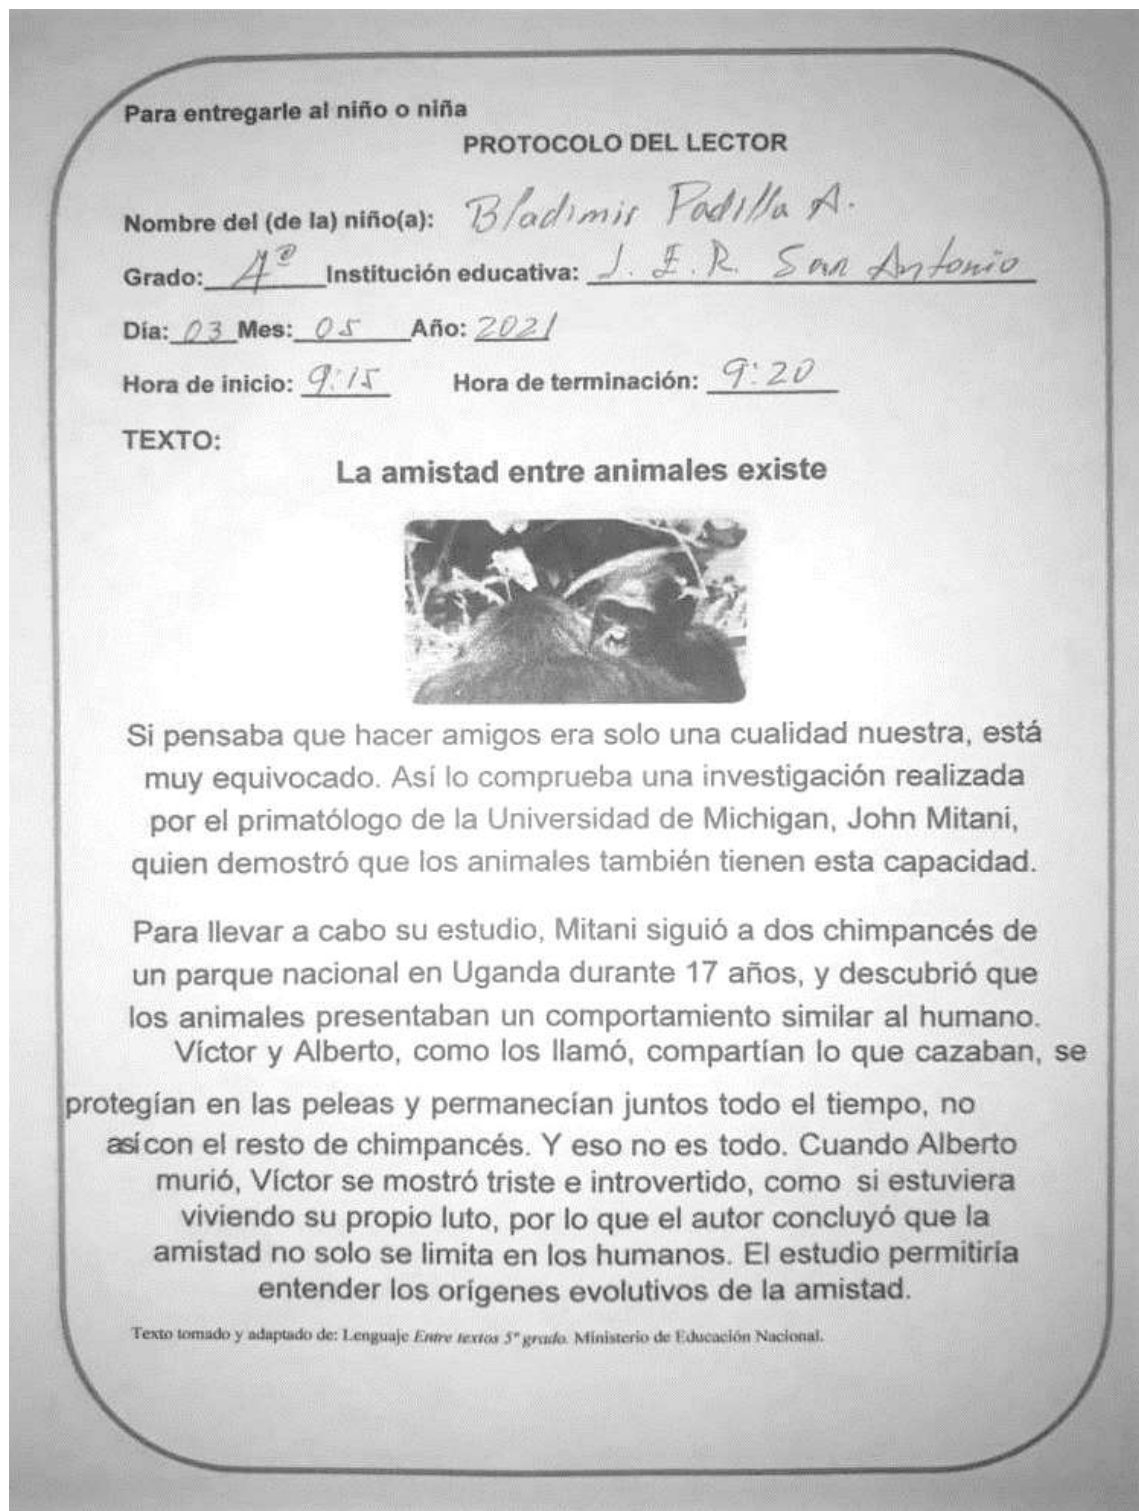 Para entregarle al niño o niña
PROTOCOLO DEL LECTOR
Nombre del (de la) niño(a): Bladimir Padilla A.
Grado: 4º Institución educativa: I. E. R. San Antonio
Día: 03 Mes: 05 Año: 2021
Hora de inicio: 9:15 Hora de terminación: 9:20
TEXTO:
La amistad entre animales existe
Si pensaba que hacer amigos era solo una cualidad nuestra, está
muy equivocado. Así lo comprueba una investigación realizada
por el primatólogo de la Universidad de Michigan, John Mitani,
quien demostró que los animales también tienen esta capacidad.
Para llevar a cabo su estudio, Mitani siguió a dos chimpancés de
un parque nacional en Uganda durante 17 años, y descubrió que
los animales presentaban un comportamiento similar al humano.
Víctor y Alberto, como los llamó, compartían lo que cazaban, se
protegían en las peleas y permanecían juntos todo el tiempo, no
así con el resto de chimpancés. Y eso no es todo. Cuando Alberto
murió, Víctor se mostró triste e introvertido, como si estuviera
viviendo su propio luto, por lo que el autor concluyó que la
amistad no solo se limita en los humanos. El estudio permitiría
entender los orígenes evolutivos de la amistad.
Texto tomado y adaptado de: Lenguaje Entre textos 5º grado. Ministerio de Educación Nacional.